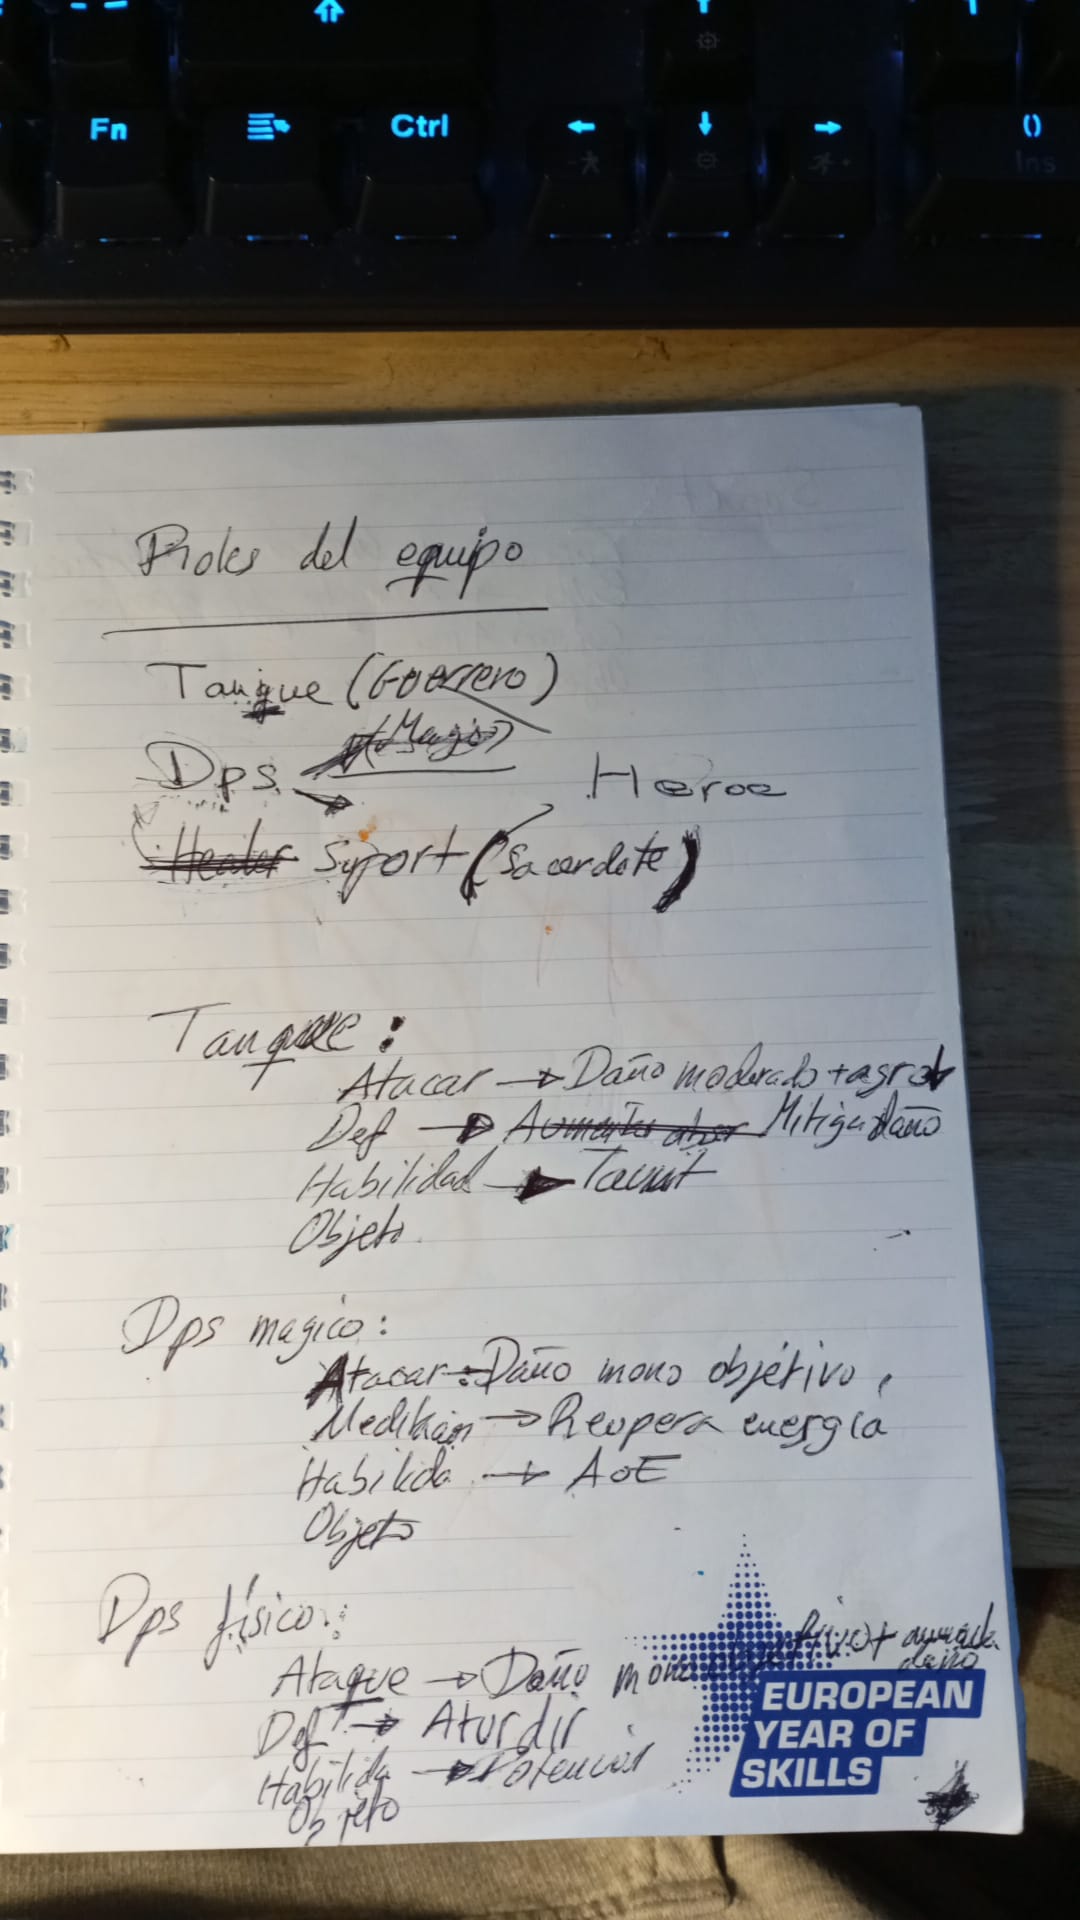 Fn
Ctrl
Ins
Roles del equipo
Tanque (Guerrero)
(Mago)
Dps
Heroe
Healer Suport (Sacerdote)
Tanque:
Atacar → Daño moderado + agro
Def → Aumenta Mitiga daño
Habilidad → Taunt
Objeto.
Dps magico:
Atacar: Daño mono objétivo,
Meditación → Recupera energía
Habilida → AoE
Objeto
Dps físico:
Ataque → Daño mono
daño
Def → Aturdir
Habilida → Potenciar
Objeto
EUROPEAN
YEAR OF
SKILLS